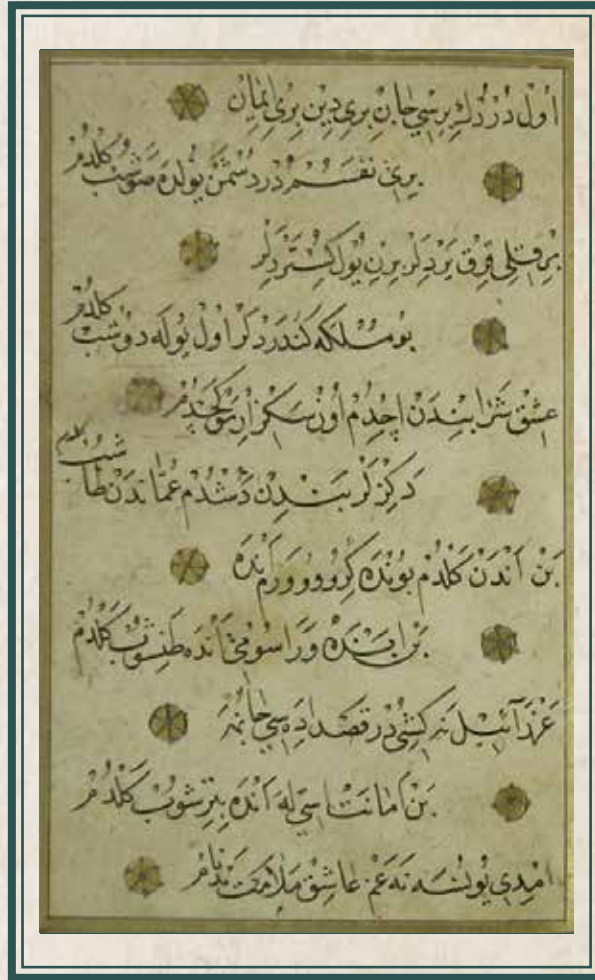 اُولْ دُرْدُلَرْ بِرِسِي جَانْ بِرِي دِينْ بِرِي اِيمَانْ
بِرِي نَفَسُمْدُرْ دُشْمَنْ يُولْدَه صَوَشُبْ كَلْدُمْ
بِرِ قِلِي قِرْقْ يَرْدِلَرْ بِرِنِ يُولْ كُسْتَرْدِلَرْ
بُو مُلْكَه كَنْدَرْدِلَرْ اُولْ يُولَه دُوشُبْ كَلْدُمْ
عِشْقْ شَرَابِنْدَنْ اِچْدُمْ اُونْ سَكِزْ اِرْمَقْ كَچْدُمْ
دَكِزْلَرْ بَنْدِنْ دَشْدُمْ عُمَّانْدَنْ طَاشُبْ كَلْدُمْ
بَنْ اَنْدَنْ كَلْدُمْ بُونْدَه كِرُو وُورَرَمْ اَنْدَه
بَنْ اَنْدَه وَرَاسُومِي اَنْدَه طَنِشُوبْ كَلْدُمْ
عَزْرَآئِيلْ نَه كِشِي دُرْ قَصْد اِدَه سِي جَانُمَه
بَنْ اَمَانَتْ اِسِّي لَه اَنْدَه بِتِرِشُوبْ كَلْدُمْ
اِمْدِي يُونُسَه نَه غَمْ عَاشِقْ مَلَامَتْ بَدْنَامْ